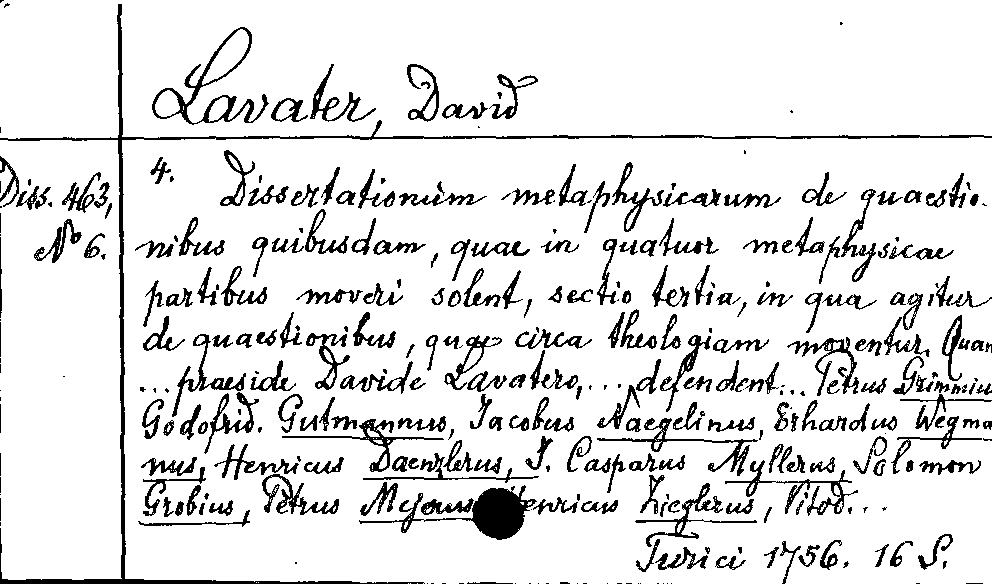 Lavater, David
Diss. 463,
No 6.
4. Dissertationum metaphysicarum de quaestio-
nibus quibusdam, quae in quatuor metaphysicae
partibus moveri solent, sectio tertia, in qua agitur
de quaestionibus, quae circa theologiam moventur. Quam
... praeside Davide Lavatero, ... defendent... Petrus Grimmius
Godofrid. Gutmannus, Jacobus Naegelinus, Erhardus Wegma-
nus, Henricus Daenzlerus, J. Casparus Myllerus, Salomon
Grobius, Petrus Henricus Zieglerus, Vitod...
Turici 1756. 16 S.